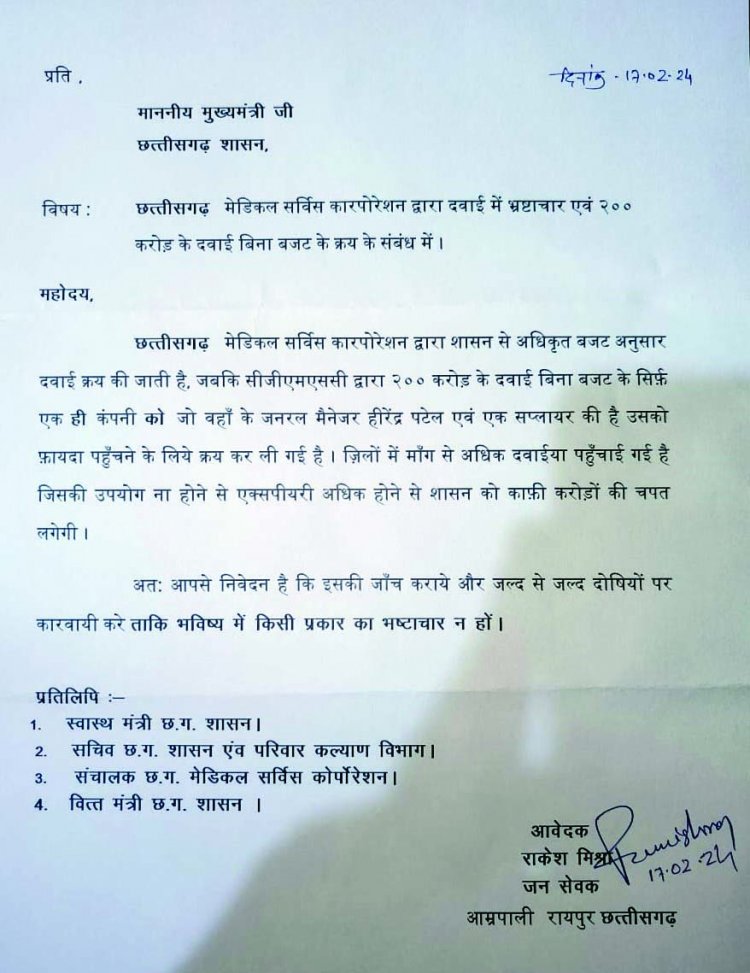 प्रति ,
दिनांक - 17.02.24
माननीय मुख्यमंत्री जी
छत्तीसगढ़ शासन,
विषय : छत्तीसगढ़ मेडिकल सर्विस कारपोरेशन द्वारा दवाई में भ्रष्टाचार एवं २००
करोड़ के दवाई बिना बजट के क्रय के संबंध में ।
महोदय,
छत्तीसगढ़ मेडिकल सर्विस कारपोरेशन द्वारा शासन से अधिकृत बजट अनुसार
दवाई क्रय की जाती है, जबकि सीजीएमएससी द्वारा २०० करोड़ के दवाई बिना बजट के सिर्फ़
एक ही कंपनी को जो वहाँ के जनरल मैनेजर हीरेंद्र पटेल एवं एक सप्लायर की है उसको
फ़ायदा पहुँचने के लिये क्रय कर ली गई है । ज़िलों में माँग से अधिक दवाईया पहुँचाई गई है
जिसकी उपयोग ना होने से एक्सपीयरी अधिक होने से शासन को काफ़ी करोड़ों की चपत
लगेगी ।
अतः आपसे निवेदन है कि इसकी जाँच कराये और जल्द से जल्द दोषियों पर
कारवायी करे ताकि भविष्य में किसी प्रकार का भष्टाचार न हों ।
प्रतिलिपि :–
1. स्वास्थ मंत्री छ.ग. शासन ।
2. सचिव छ.ग. शासन एंव परिवार कल्याण विभाग ।
3. संचालक छ.ग. मेडिकल सर्विस कोर्पोरेशन ।
4. वित्त मंत्री छ.ग. शासन ।
आवेदक
राकेश मिश्रा
17.02.24
जन सेवक
आम्रपाली रायपुर छत्तीसगढ़